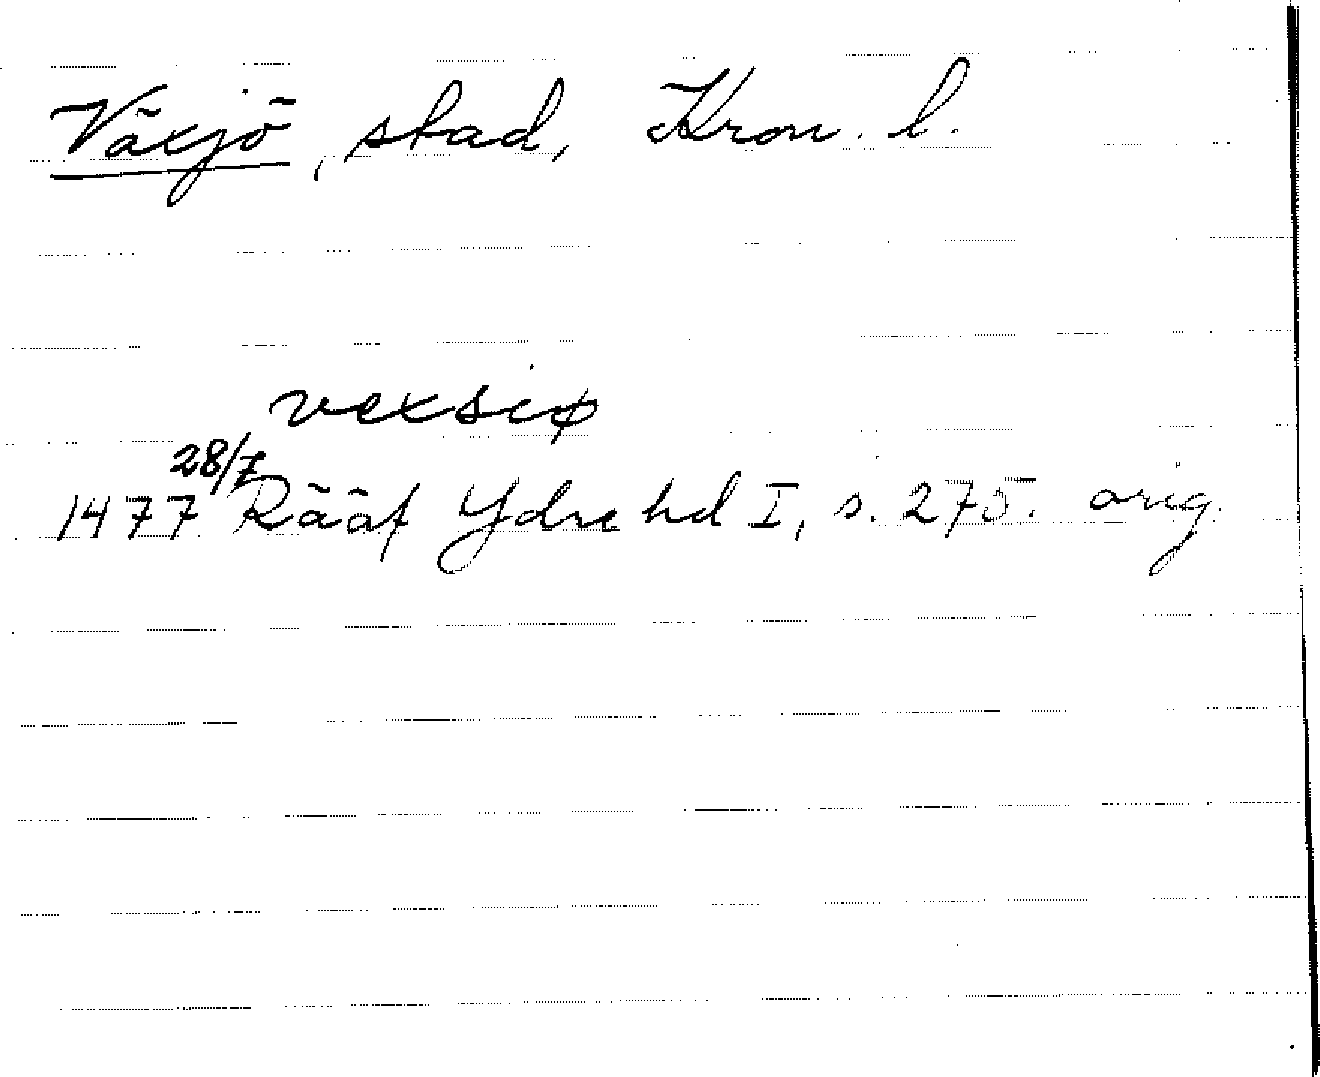 Växjö, stad, Kron. l.
vexsiø
28/7
1477 Rääf Ydre hd I, s. 275. orig.